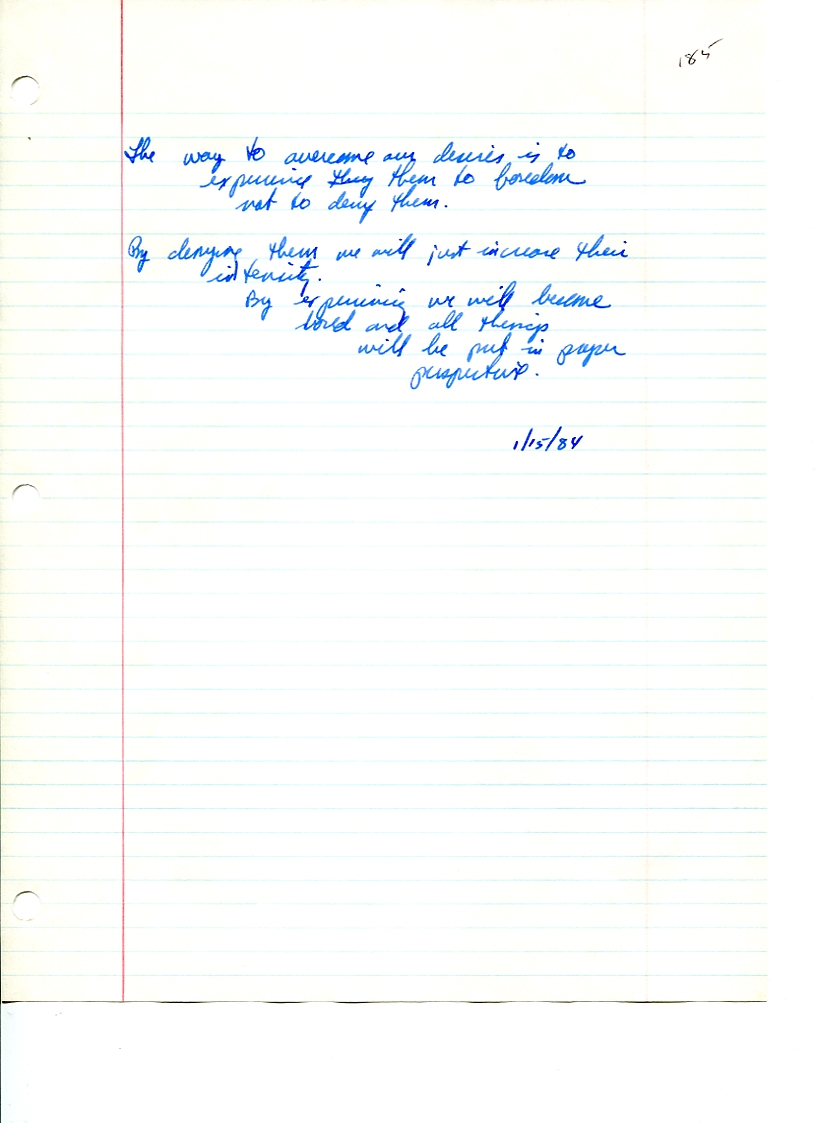 185
The way to overcome our desires is to
experience they them to boredom
not to deny them.
By denying them we will just increase their
intensity.
By experiencing we will become
bored and all things
will be put in proper
perspective.
1/15/84